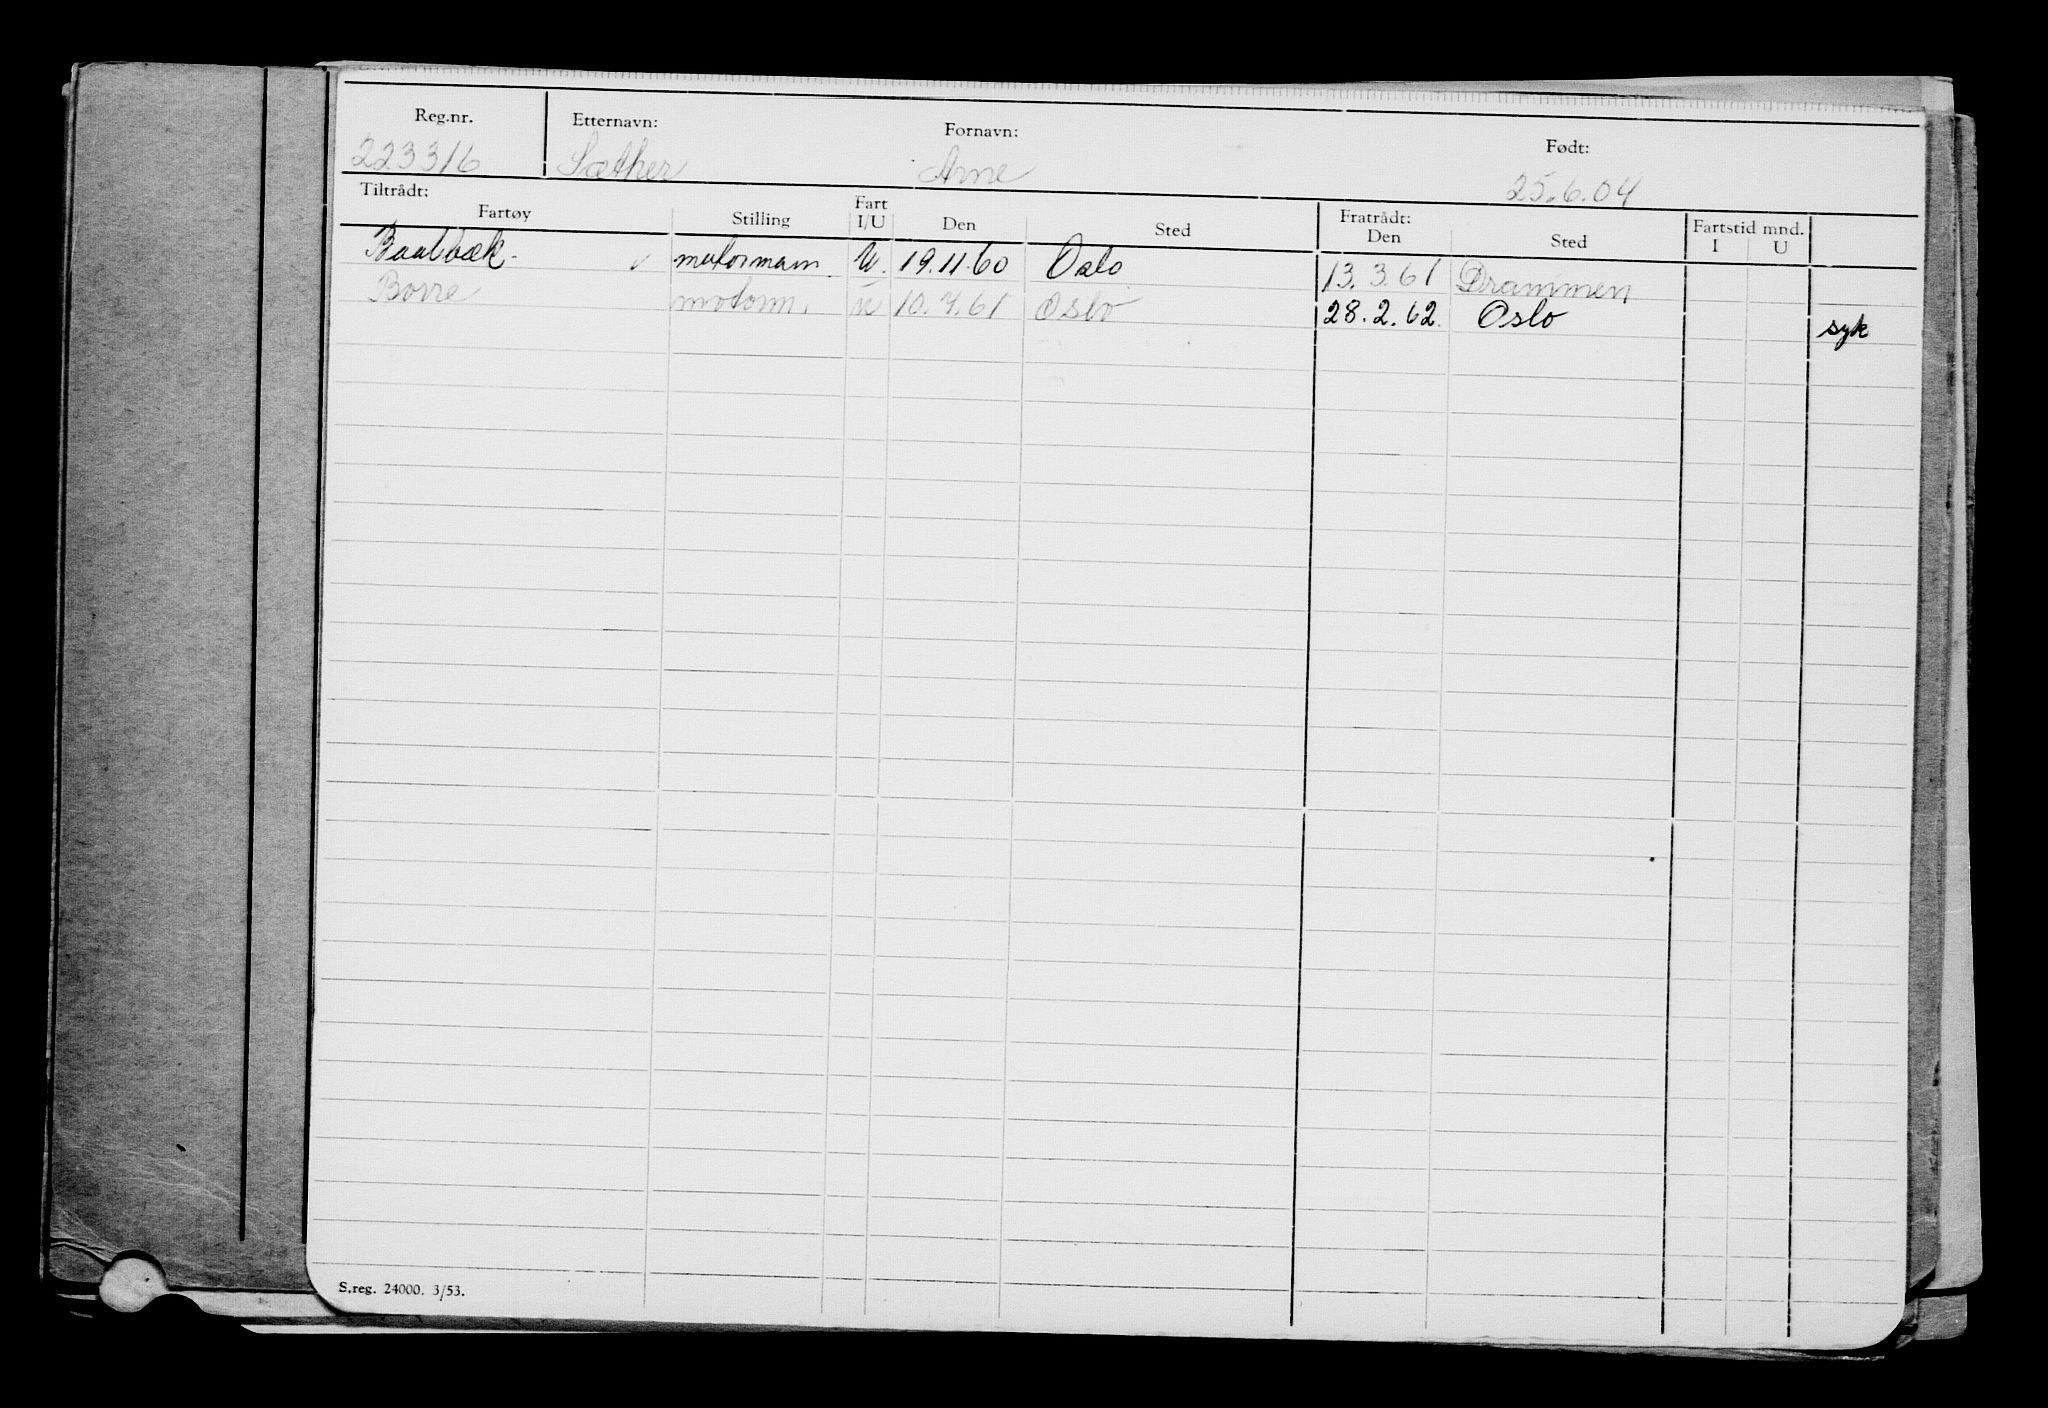 Reg.nr. Etternavn: Fornavn: Født:
223316 Sæther Arne 25.6.04
Tiltrådt: Fart Fratrådt: Fartstid mnd.
Fartøy Stilling I/U Den Sted Den Sted I U
Baalbæk. motormann U. 19.11.60 Oslo 13.3.61 Drammen
Borre motorm. U 10.7.61 Oslo 28.2.62 Oslo syk
S.reg. 24000. 3/53.